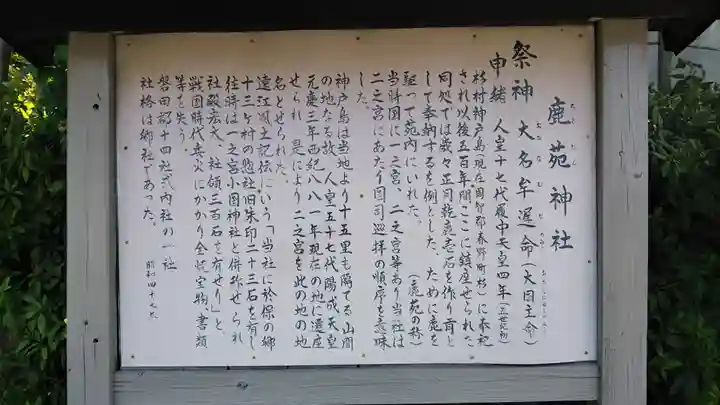 鹿苑神社
祭神 大名牟遅命(大国主命)
由緒 人皇十七代履中天皇四年(三世紀初)
杉村神戸島(現在周智郡春野町杉)に奉祀
され以後五百年間ここに鎮座せられた、
同処では歳々正月乾鹿志石を作り肩と
して奉納するを例とした、ために鹿を
駆って苑内にいれた。(鹿苑の称)
当時国に一之宮、二之宮等あり当社は
二之宮にあたり国司巡拝の順序を意味
した。
神戸島は当地より十五里も隔てる山間
の地なる故、人皇五十七代陽成天皇
元慶三年西紀八八一年現在の地に遷座
せられ、是により二之宮を此の地の地
名とせられた。
遠江風土記伝にいう「当社に於保の郷
十三ヶ村の惣社旧朱印二十三石を有し
往時は一之宮小国神社と併称せられ
社殿宏大、社領三百石を有せり」と、
戦国時代兵火にかかり全焼宝物、書類
等を失う。
磐田郡十四社式内社の一社
社格は郷社であった。
昭和四十七年